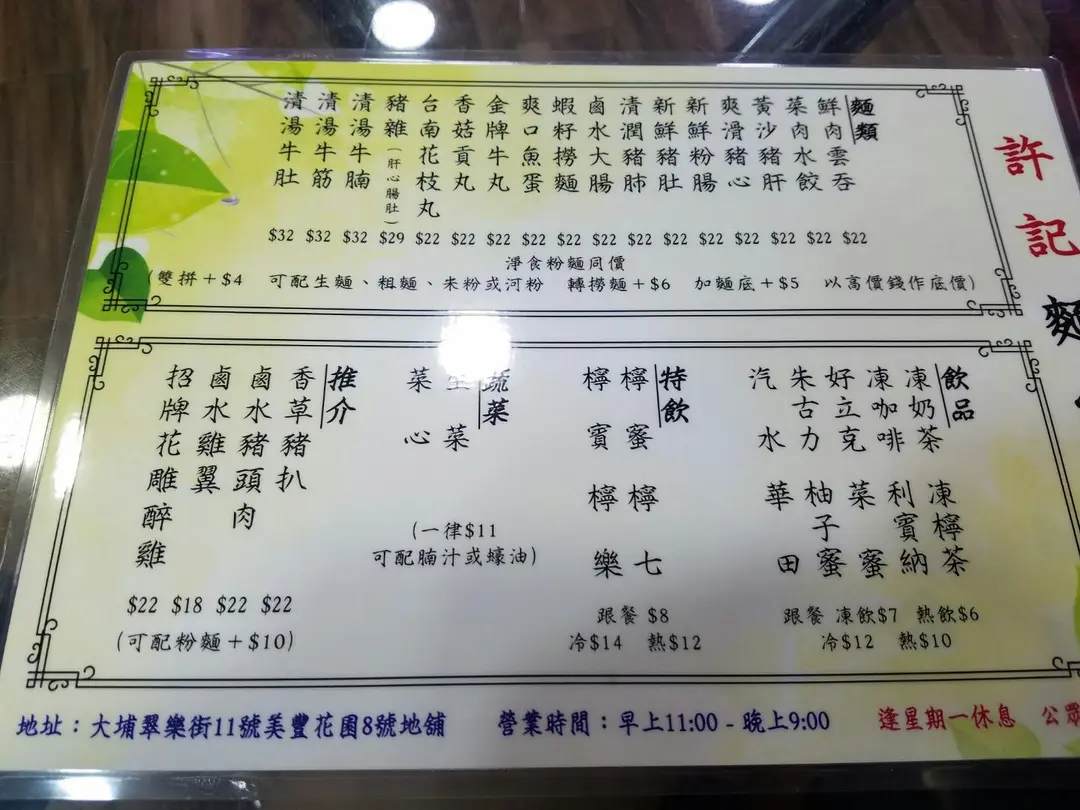 許記麵
麵類
鮮肉雲吞
菜肉水餃
黃沙豬肝
爽滑豬心
新鮮粉腸
新鮮豬肚
清潤豬肺
鹵水大腸
蝦籽撈麵
爽口魚蛋
金牌牛丸
香菇貢丸
台南花枝丸
豬雜(肝心腸肚)
清湯牛腩
清湯牛筋
清湯牛肚
$32 $32 $32 $29 $22 $22 $22 $22 $22 $22 $22 $22 $22 $22 $22 $22 $22
淨食粉麵同價
(雙拼+$4 可配生麵、粗麵、米粉或河粉 轉撈麵+$6 加麵底+$5 以高價錢作底價)
飲品
凍奶茶
凍咖啡
好立克
朱古力
汽水
凍檸茶
利賓納
菜蜜
柚子蜜
華田
跟餐 凍飲$7 熱飲$6
冷$12 熱$10
特飲
檸蜜
檸賓
檸七
檸樂
跟餐 $8
冷$14 熱$12
蔬菜
生菜
菜心
(一律$11
可配腩汁或蠔油)
推介
香草豬扒
鹵水豬頭肉
鹵水雞翼
招牌花雕醉雞
$22 $18 $22 $22
(可配粉麵+$10)
地址：大埔翠樂街11號美豐花園8號地舖 營業時間：早上11:00 - 晚上9:00 逢星期一休息 公眾